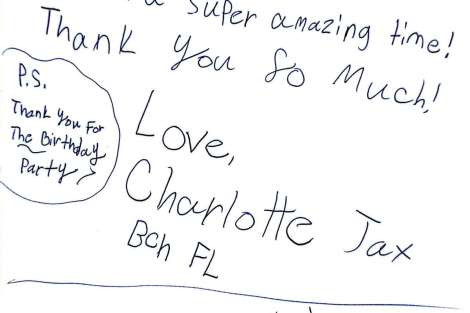 a super amazing time!
Thank You So Much!
P.S.
Thank You For
The Birthday
Party
Love,
Charlotte Jax
Bch FL